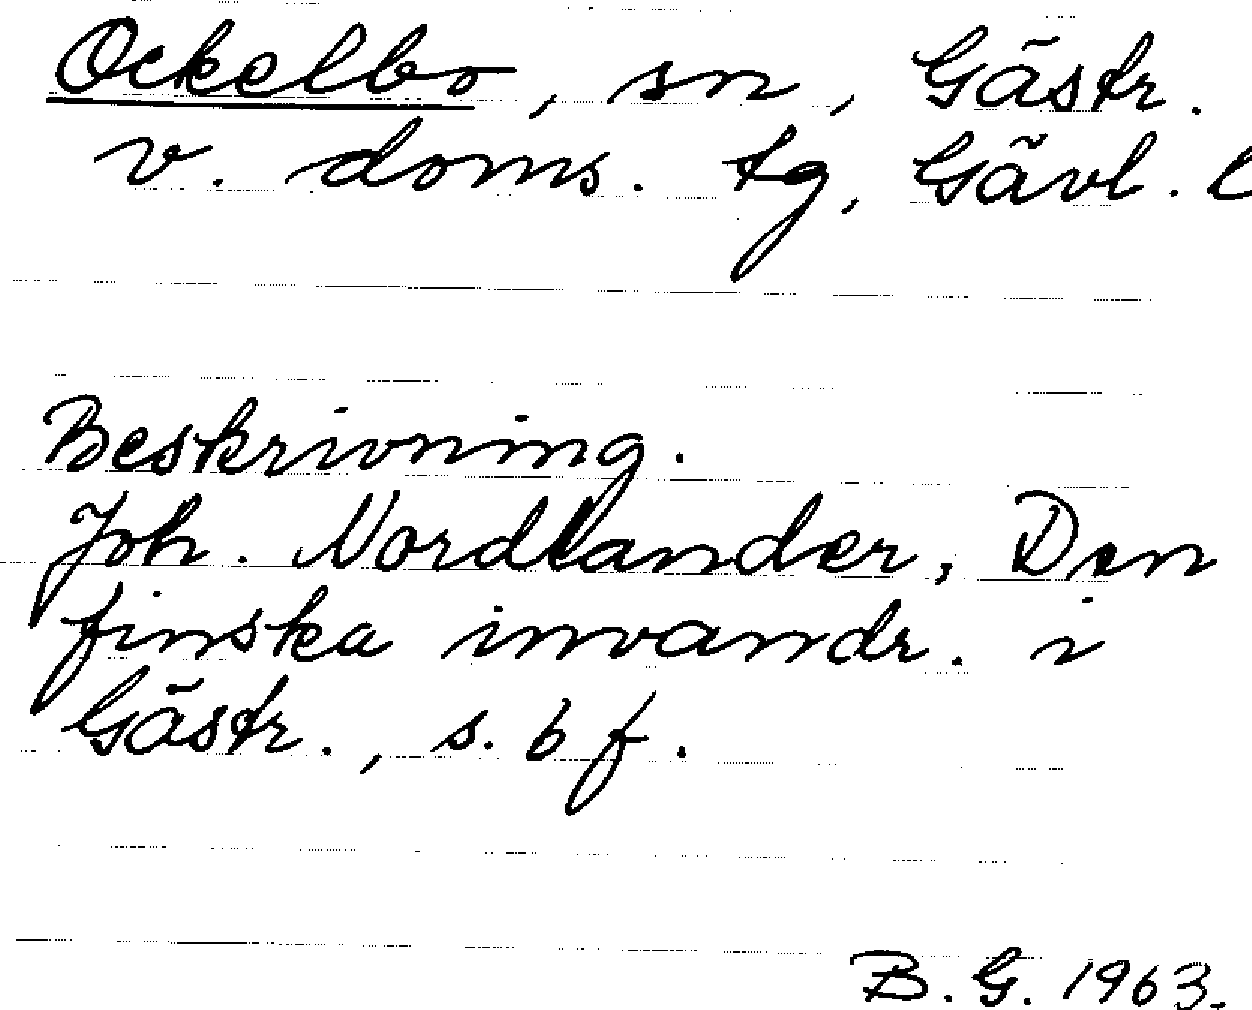 Ockelbo, sn, Gästr.
v. doms. tg, Gävl. l
Beskrivning.
Joh. Nordlander, Den
finska invandr. i
Gästr., s. 6 f.
B. G. 1963.